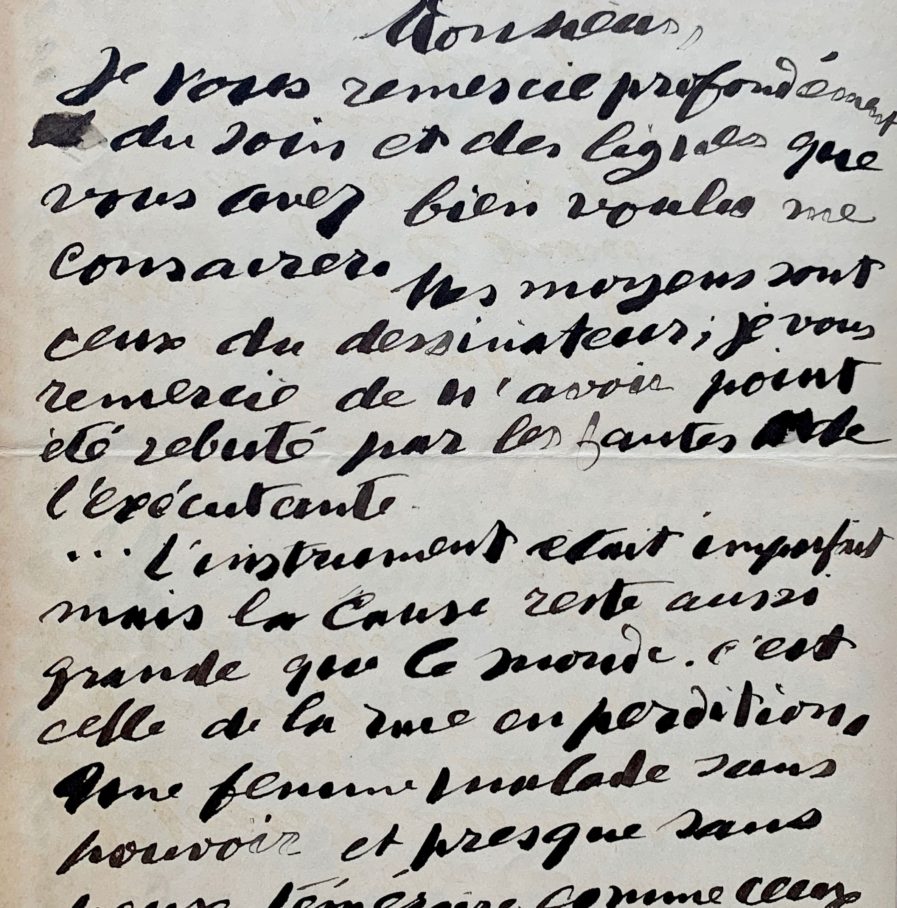 Monsieur,
Je vous remercie profondément
du soin et des lignes que
vous avez bien voulu me
consacrer. Mes moyens sont
ceux du dessinateur; je vous
remercie de n'avoir point
été rebuté par les fautes de
l'exécutante
... L'instrument etait imparfait
mais la cause reste aussi
grande que le monde. c'est
celle de la rue en perdition.
Une femme malade sans
pouvoir et presque sans
téméraire comme ceux